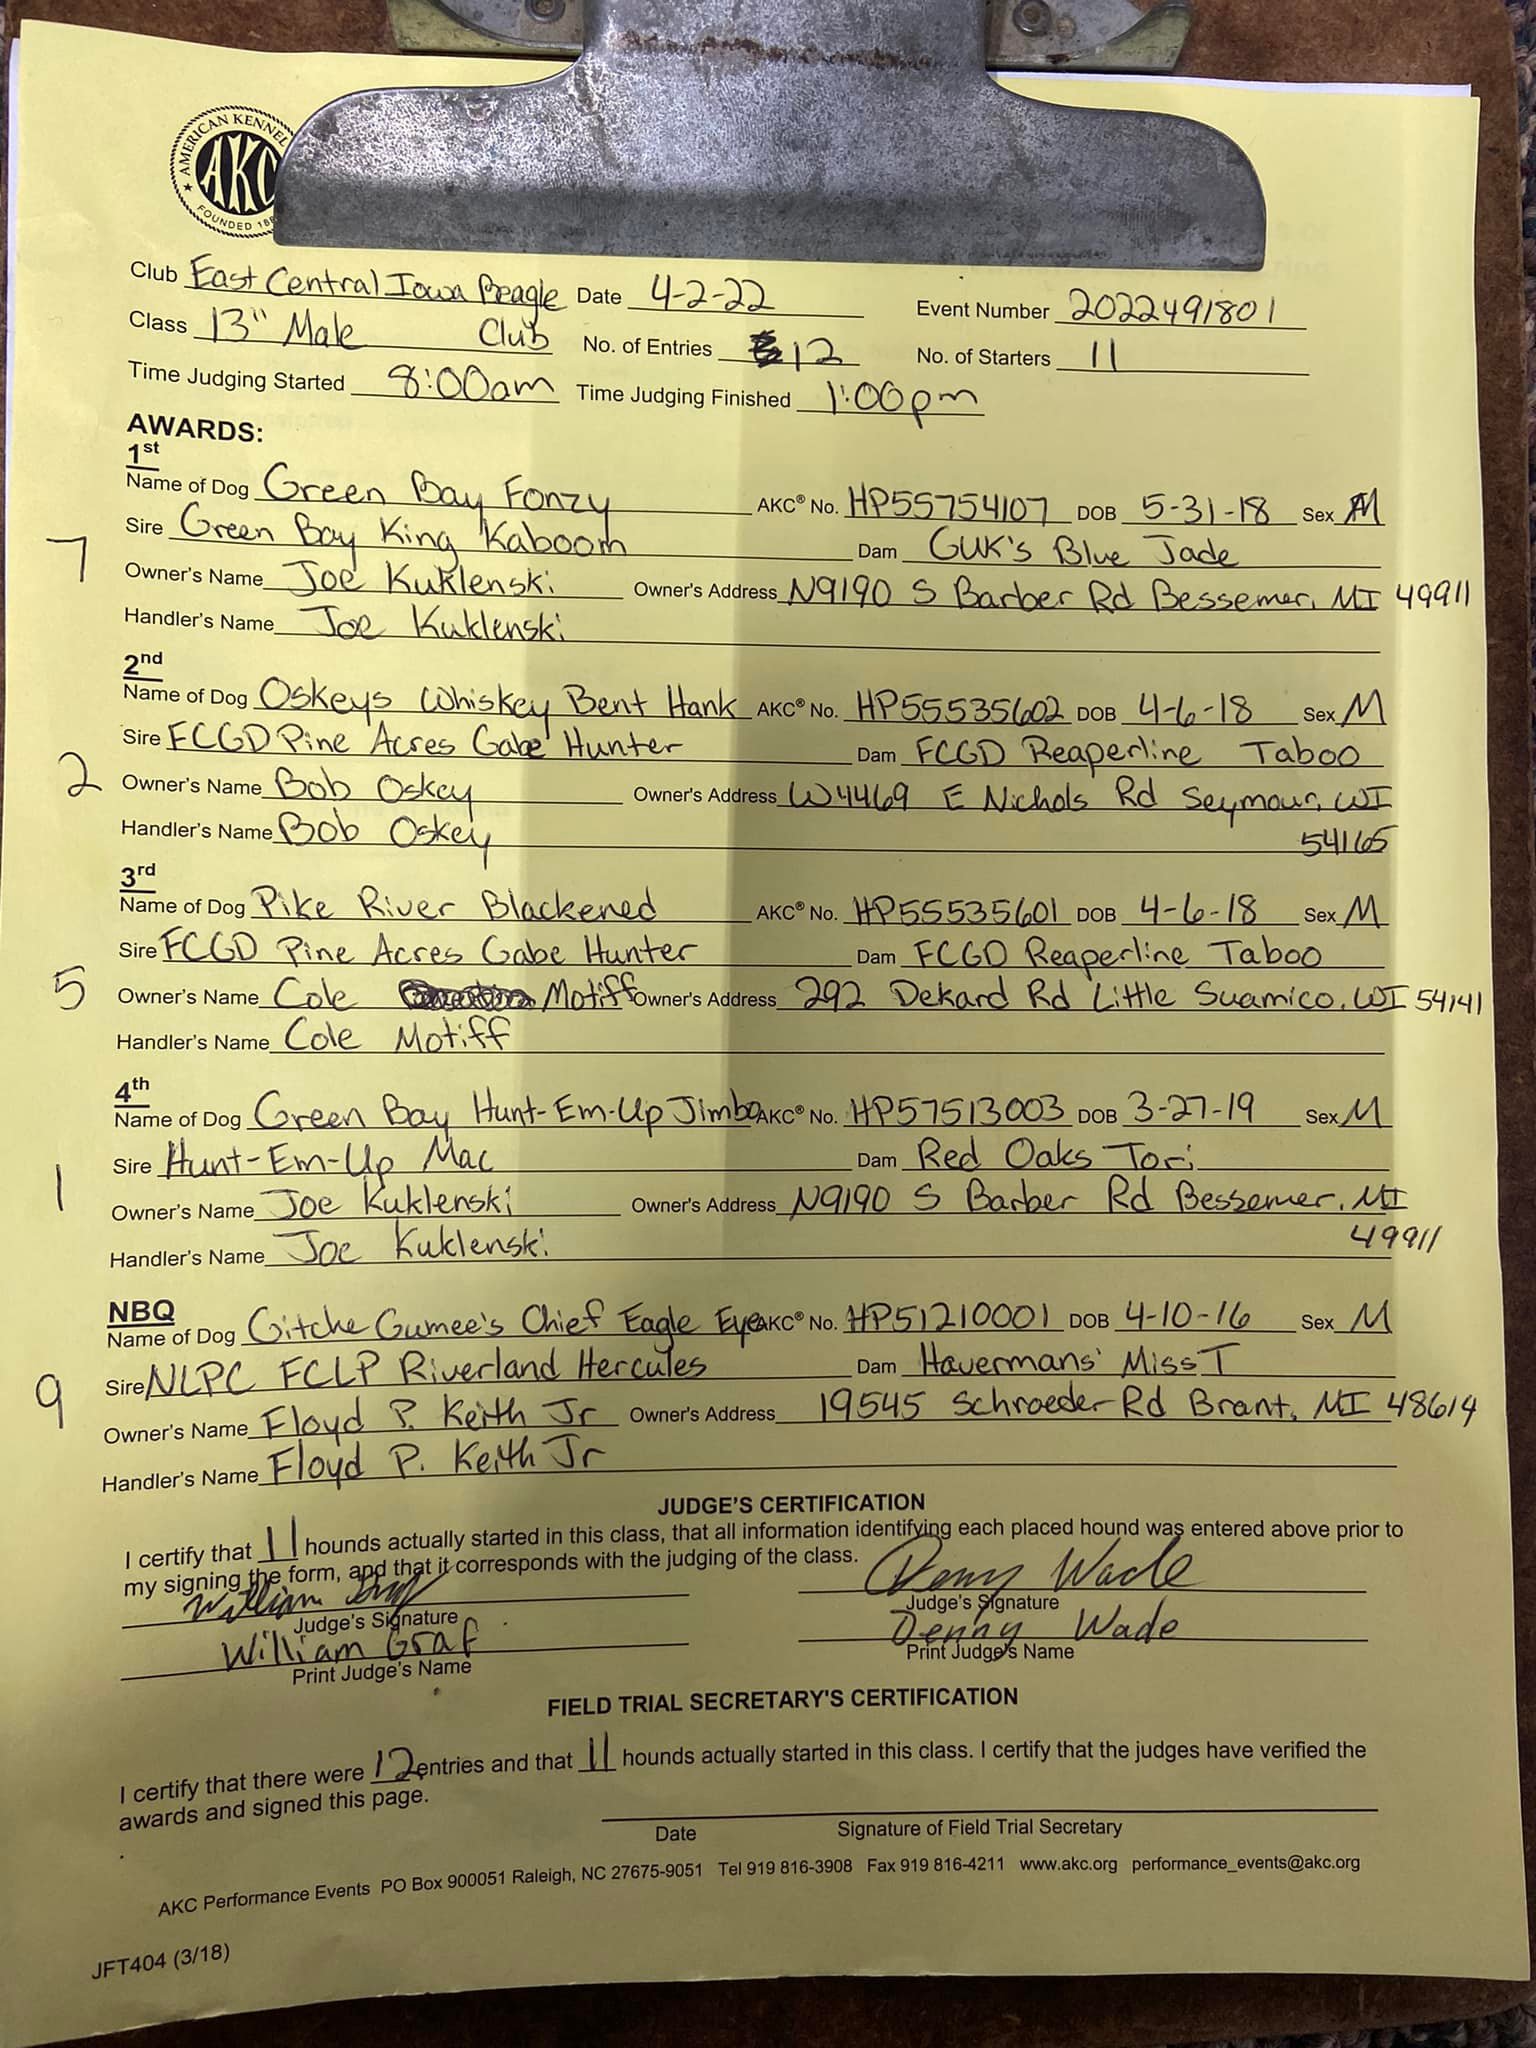 AMERICAN KENNEL
AKC
FOUNDED
Club East Central Iowa Beagle Date 4-2-22 Event Number 2022491801
Class 13" Male Club No. of Entries 12 No. of Starters 11
Time Judging Started 8:00am Time Judging Finished 1:00pm
AWARDS:
1st
Name of Dog Green Bay Fonzy AKC® No. HP55754107 DOB 5-31-18 Sex M
Sire Green Bay King Kaboom Dam GUK's Blue Jade
7
Owner's Name Joe Kuklenski Owner's Address N9190 S Barber Rd Bessemer, MI 49911
Handler's Name Joe Kuklenski
2nd
Name of Dog Oskeys Whiskey Bent Hank AKC® No. HP55535602 DOB 4-6-18 Sex M
Sire FCGD Pine Acres Gabe Hunter Dam FCGD Reaperline Taboo
2
Owner's Name Bob Oskey Owner's Address W4469 E Nichols Rd Seymour, WI
Handler's Name Bob Oskey 54165
3rd
Name of Dog Pike River Blackened AKC® No. HP55535601 DOB 4-6-18 Sex M
Sire FCGD Pine Acres Gabe Hunter Dam FCGD Reaperline Taboo
5
Owner's Name Cole Motiff Owner's Address 292 Dekard Rd Little Suamico, WI 54141
Handler's Name Cole Motiff
4th
Name of Dog Green Bay Hunt-Em-Up Jimbo AKC® No. HP57513003 DOB 3-27-19 Sex M
Sire Hunt-Em-Up Mac Dam Red Oaks Tori
1
Owner's Name Joe Kuklenski Owner's Address N9190 S Barber Rd Bessemer, MI
49911
Handler's Name Joe Kuklenski
NBQ
Name of Dog Gitche Gumee's Chief Eagle Eye AKC® No. HP51210001 DOB 4-10-16 Sex M
Sire NLPC FCLP Riverland Hercules Dam Havermans' Miss T
9
Owner's Name Floyd P. Keith Jr Owner's Address 19545 Schroeder Rd Brant, MI 48614
Handler's Name Floyd P. Keith Jr
JUDGE'S CERTIFICATION
I certify that 11 hounds actually started in this class, that all information identifying each placed hound was entered above prior to
my signing the form, and that it corresponds with the judging of the class.
William Denny Wade
Judge's Signature Judge's Signature
William Graf Denny Wade
Print Judge's Name Print Judge's Name
FIELD TRIAL SECRETARY'S CERTIFICATION
I certify that there were 12 entries and that 11 hounds actually started in this class. I certify that the judges have verified the
awards and signed this page.
Date Signature of Field Trial Secretary
AKC Performance Events PO Box 900051 Raleigh, NC 27675-9051 Tel 919 816-3908 Fax 919 816-4211 www.akc.org performance_events@akc.org
JFT404 (3/18)